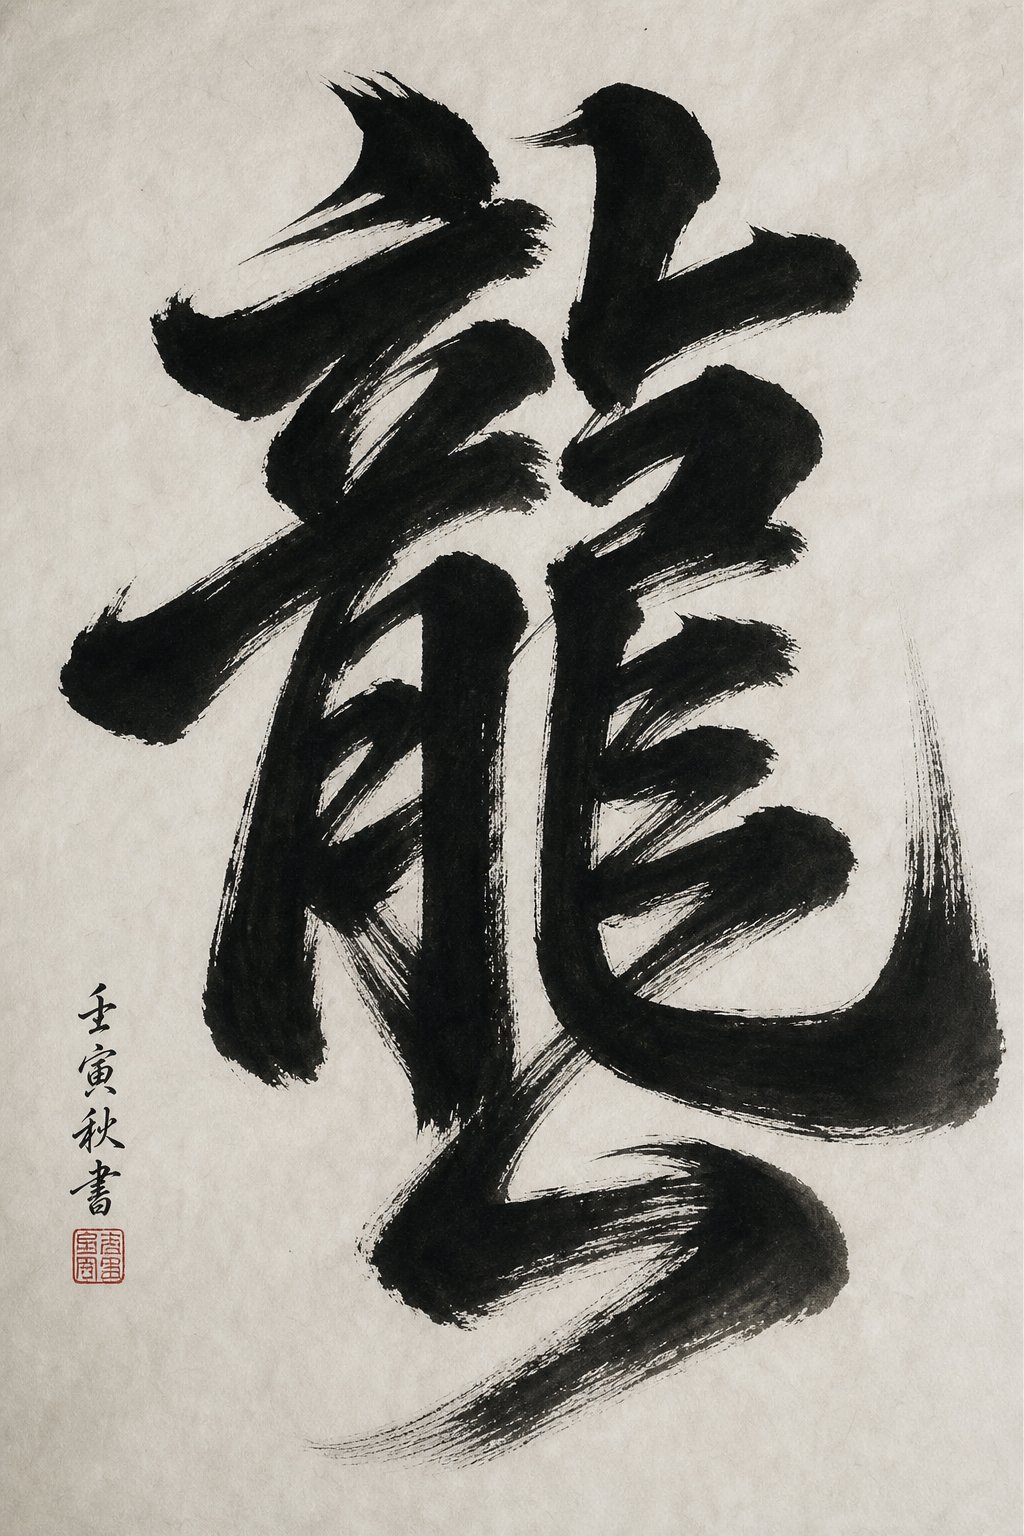 龍
壬寅秋書